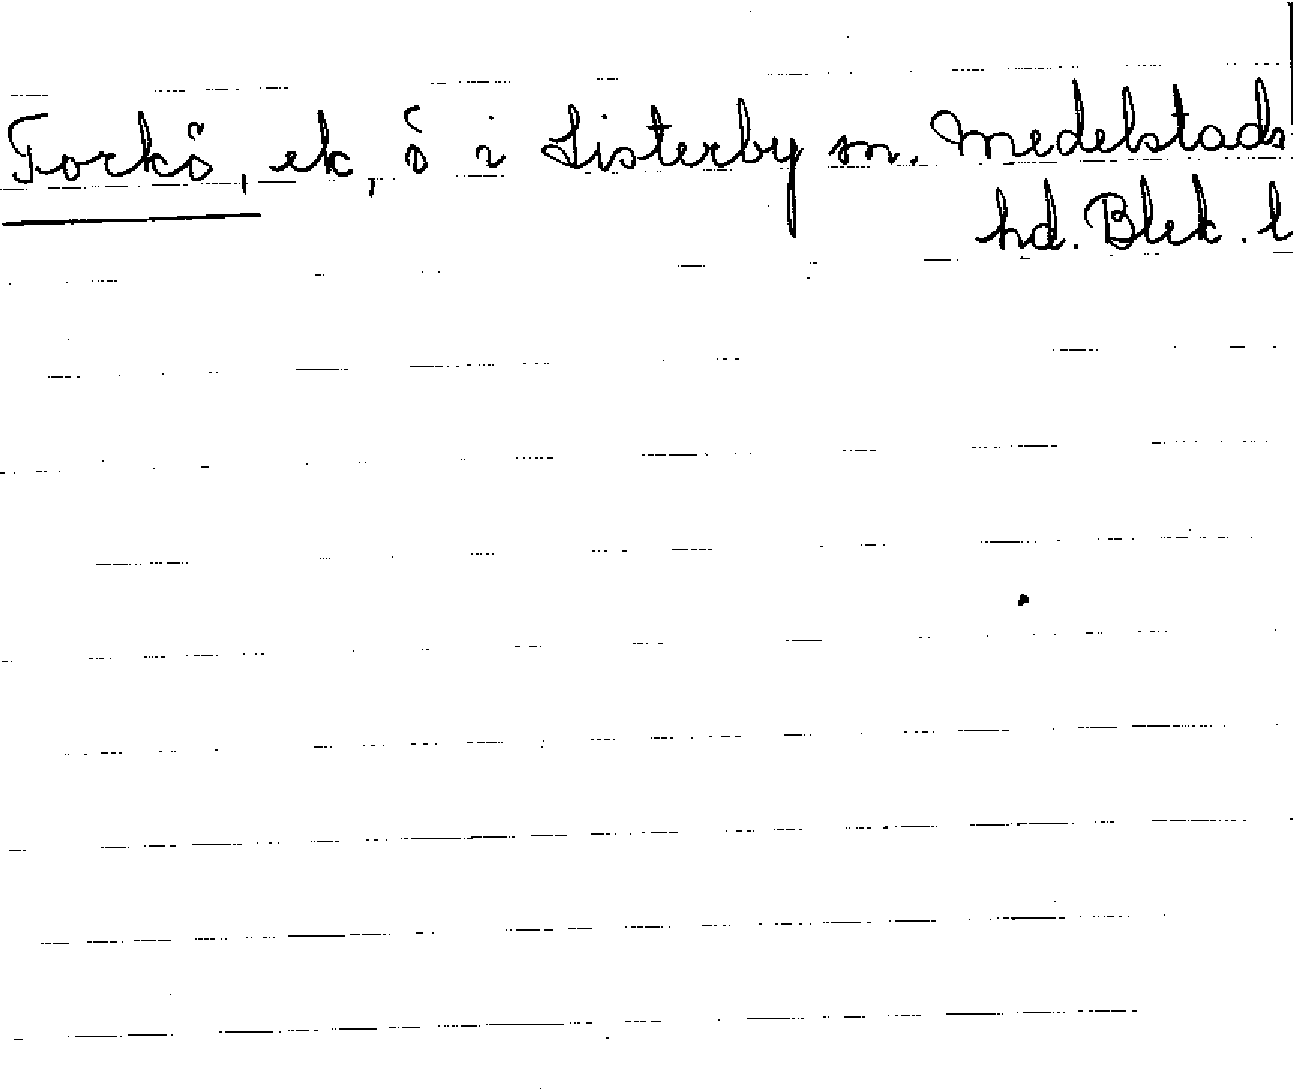 Torkö, ek, ö i Listerby sn. Medelstads
hd. Blek. l